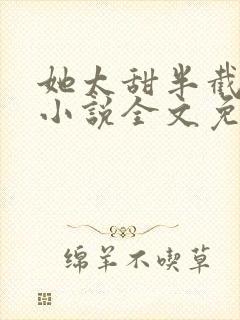 她太甜半截
小說全文免
绵羊不喫草